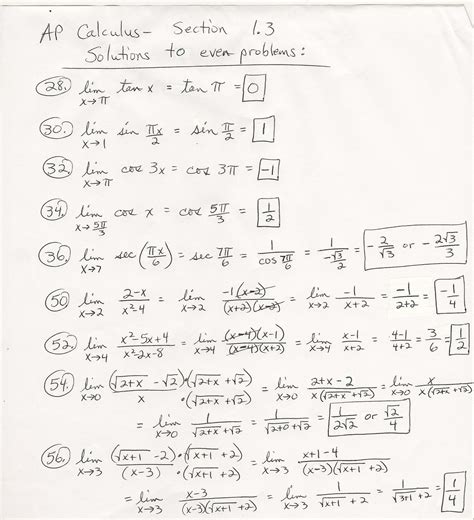 AP Calculus - Section 1.3
Solutions to even problems:
28. lim x→π tan x = tan π = 0
30. lim x→1 sin πx/2 = sin π/2 = 1
32. lim x→π cos 3x = cos 3π = -1
34. lim x→5π/3 cos x = cos 5π/3 = 1/2
36. lim x→7 sec (πx/6) = sec 7π/6 = 1/(cos 7π/6) = 1/(-√3/2) = -2/√3 or -2√3/3
50 lim x→2 (2-x)/(x²-4) = lim x→2 -1(x-2)/((x+2)(x-2)) = lim x→2 -1/(x+2) = -1/(2+2) = -1/4
52. lim x→4 (x²-5x+4)/(x²-2x-8) = lim x→4 (x-4)(x-1)/((x-4)(x+2)) = lim x→4 (x-1)/(x+2) = (4-1)/(4+2) = 3/6 = 1/2
54. lim x→0 (√(2+x) - √2)/x · (√(2+x) + √2)/(√(2+x) + √2) = lim x→0 (2+x-2)/(x(√(2+x) + √2)) = lim x→0 x/(x(√(2+x) + √2))
= lim x→0 1/(√(2+x) + √2) = 1/(√(2+0) + √2) = 1/(2√2) or √2/4
56. lim x→3 (√(x+1) - 2)/(x-3) · (√(x+1) + 2)/(√(x+1) + 2) = lim x→3 (x+1-4)/((x-3)(√(x+1) + 2))
= lim x→3 (x-3)/((x-3)(√(x+1) + 2)) = lim x→3 1/(√(x+1) + 2) = 1/(√(3+1) + 2) = 1/4